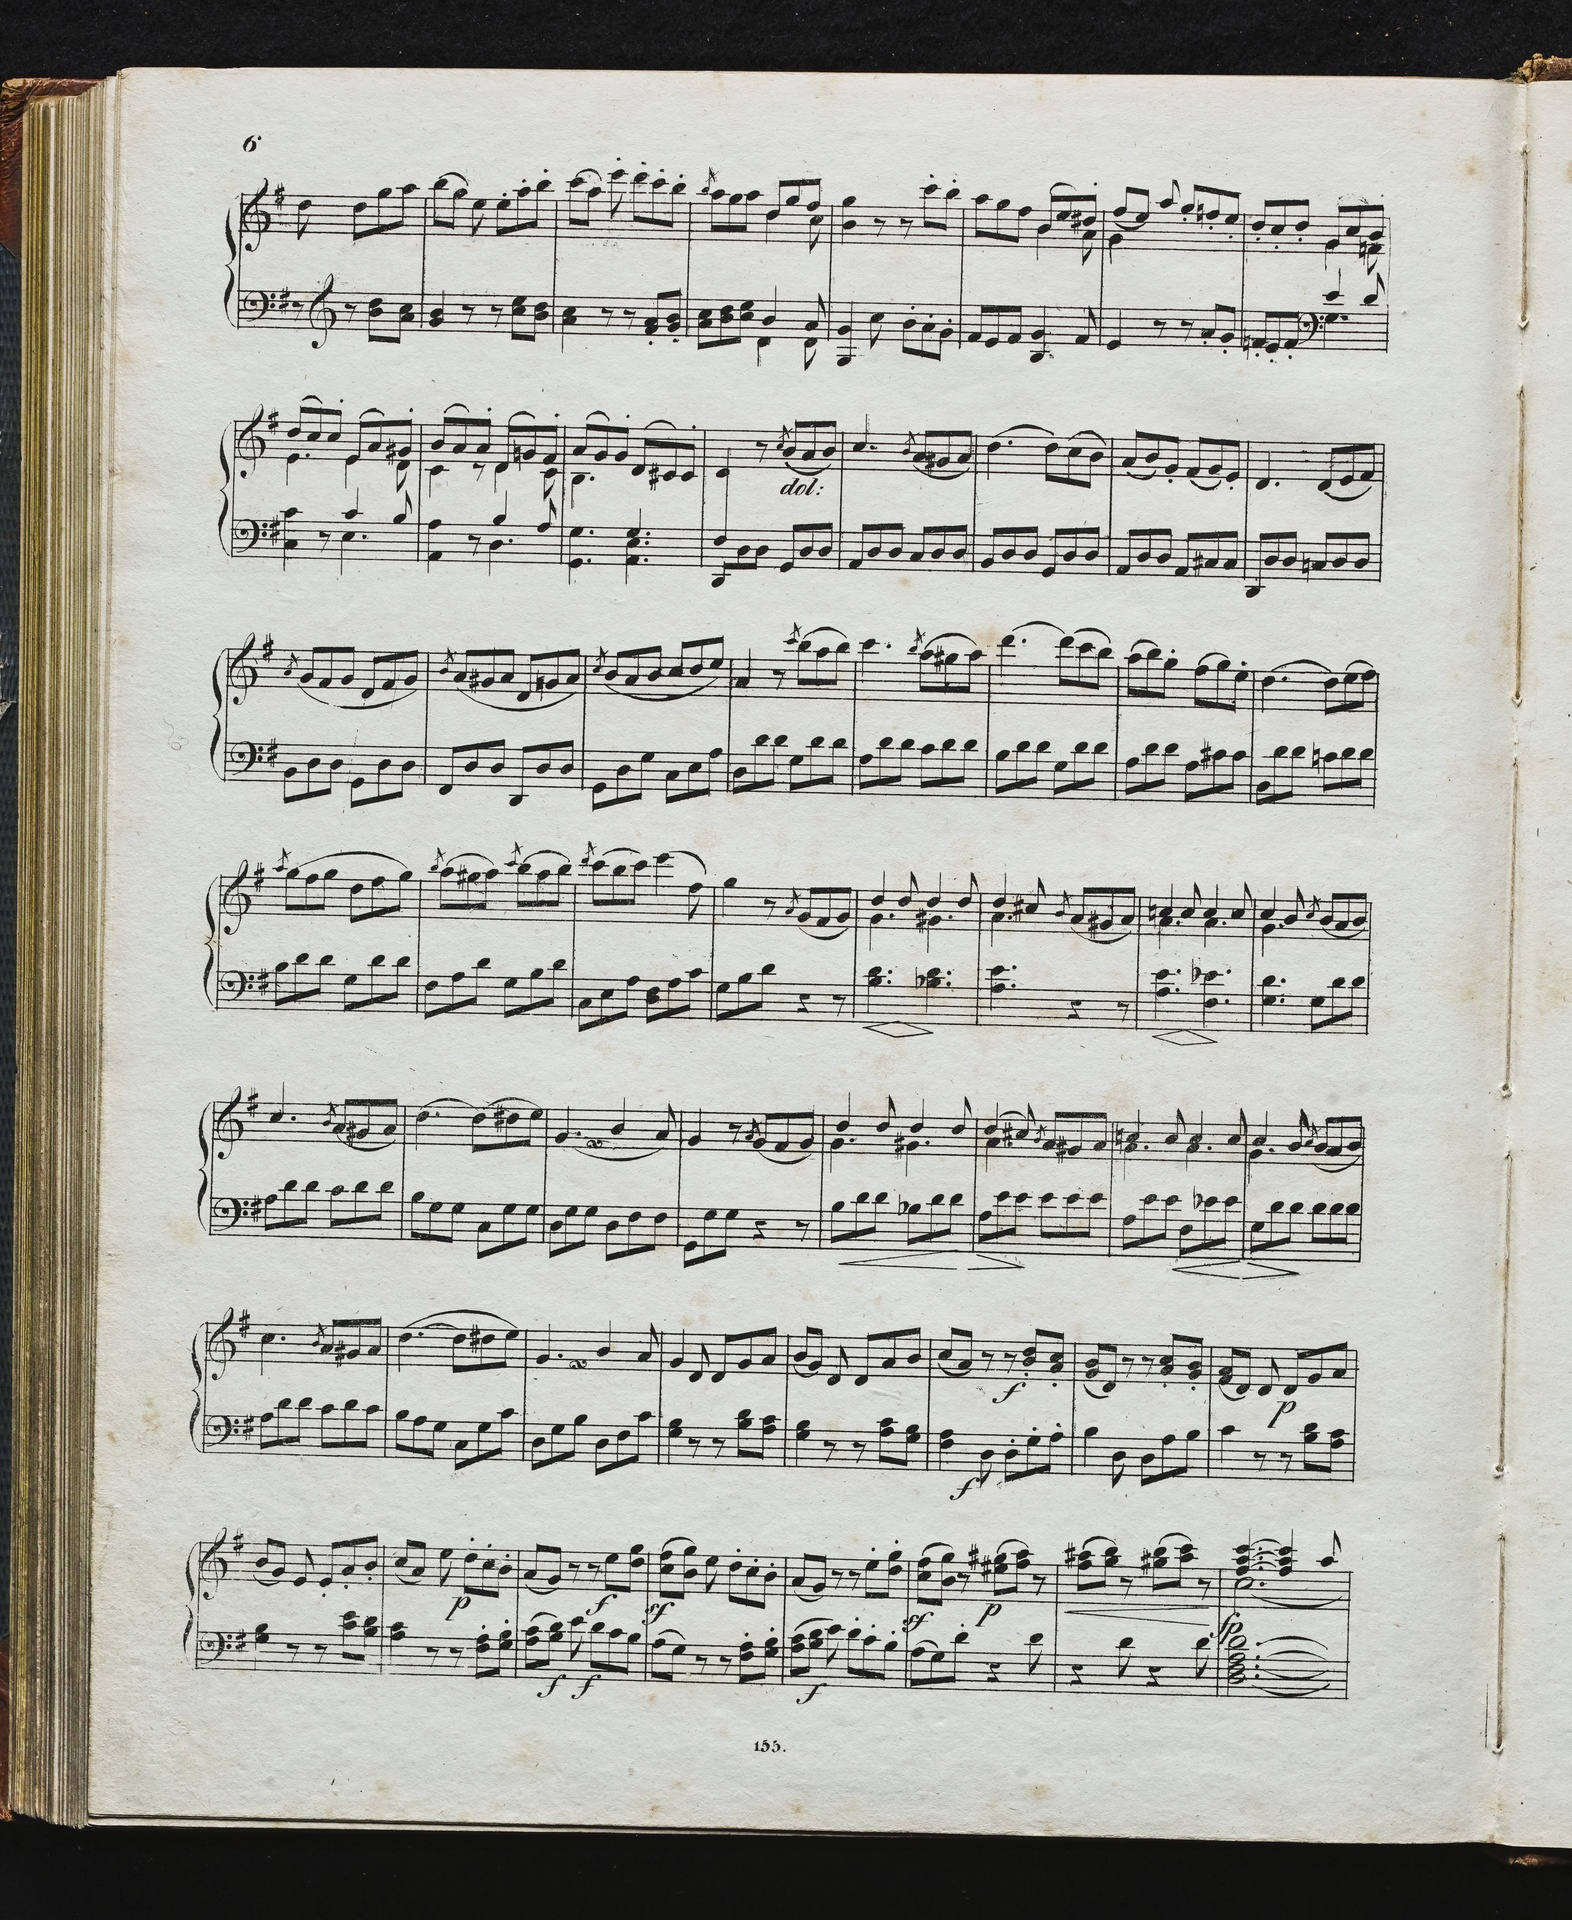 6
dol:
f
f
p
p
f
sf
sf
p
fp
f
f
f
155.